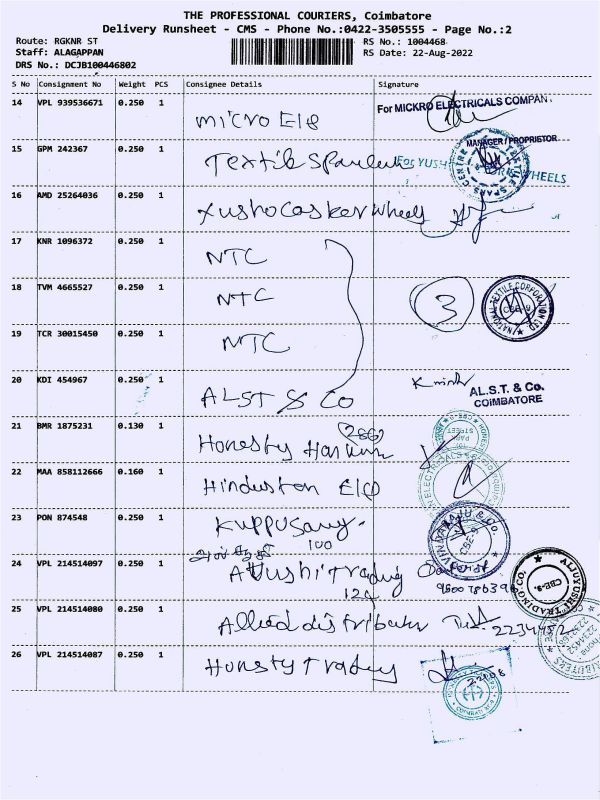 THE PROFESSIONAL COURIERS, Coimbatore
Delivery Runsheet - CMS - Phone No.:0422-3505555 - Page No.:2
Route: RGKNR ST
RS No.: 1004468
Staff: ALAGAPPAN
RS Date: 22-Aug-2022
DRS No.: DCJB100446802
S No Consignment No Weight PCS Consignee Details Signature
14 VPL 939536671 0.250 1 Micro Ele For MICKRO ELECTRICALS COMPAN.
MANAGER / PROPRIETOR
15 GPM 242367 0.250 1 Textile For YUSH WHEELS
TEXTILE SPARS CENTRE
16 AMD 25264036 0.250 1 Wheels
17 KNR 1096372 0.250 1 NTC
18 TVM 4665527 0.250 1 NTC 3 NATIONAL TEXTILE CORPORATION LTD. CBE-9
19 TCR 30015450 0.250 1 NTC
20 KDI 454967 0.250 1 ALST & Co AL.S.T. & Co.
COIMBATORE
21 BMR 1875231 0.130 1 Honesty
22 MAA 858112666 0.160 1 Hinduston Ele
23 PON 874548 0.250 1 Kuppusamy
100
24 VPL 214514097 0.250 1 Ayushi Trading
124
ALIJYUSHI TRADING CO. CBE-9.
25 VPL 214514080 0.250 1 Allied distributer 2234452
26 VPL 214514087 0.250 1 Honesty Trading